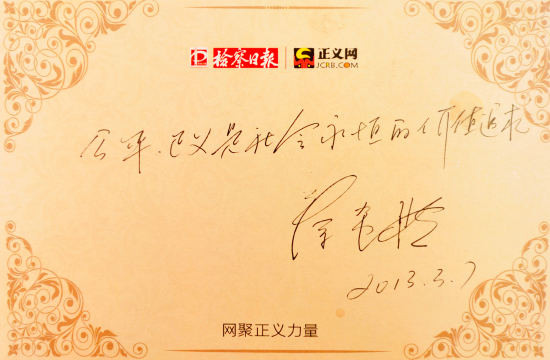 检察日报 正义网
JCRB.COM
公平、正义是社会永恒的价值追求
2013.3.7
网聚正义力量